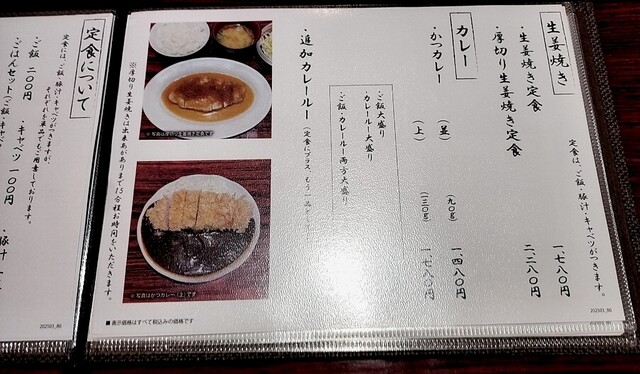 生姜焼き
定食は、ご飯・豚汁・キャベツがつきます。
・生姜焼き定食 一、七八〇円
・厚切り生姜焼き定食 二、二八〇円
カレー
・かつカレー
(並) (九〇g) 一、四八〇円
(上) (一三〇g) 一、七八〇円
・ご飯大盛り
・カレールー大盛り
・ご飯・カレールー両方大盛り
・追加カレールー
(定食にプラス、もう一品
※写真は厚切り生姜焼き定食です
※写真はかつカレー(上)です
※厚切り生姜焼きは出来あがりまで15分程お時間をいただきます。
■表示価格はすべて税込みの価格です
202503_B0
定食について
定食には、ご飯・豚汁・キャベツがつきますが、
それぞれを単品でもご用意しております。
・ご飯 二〇〇円
・キャベツ 一〇〇円
・豚汁
・ごはんセット(ご飯・キャベ
202503_B0